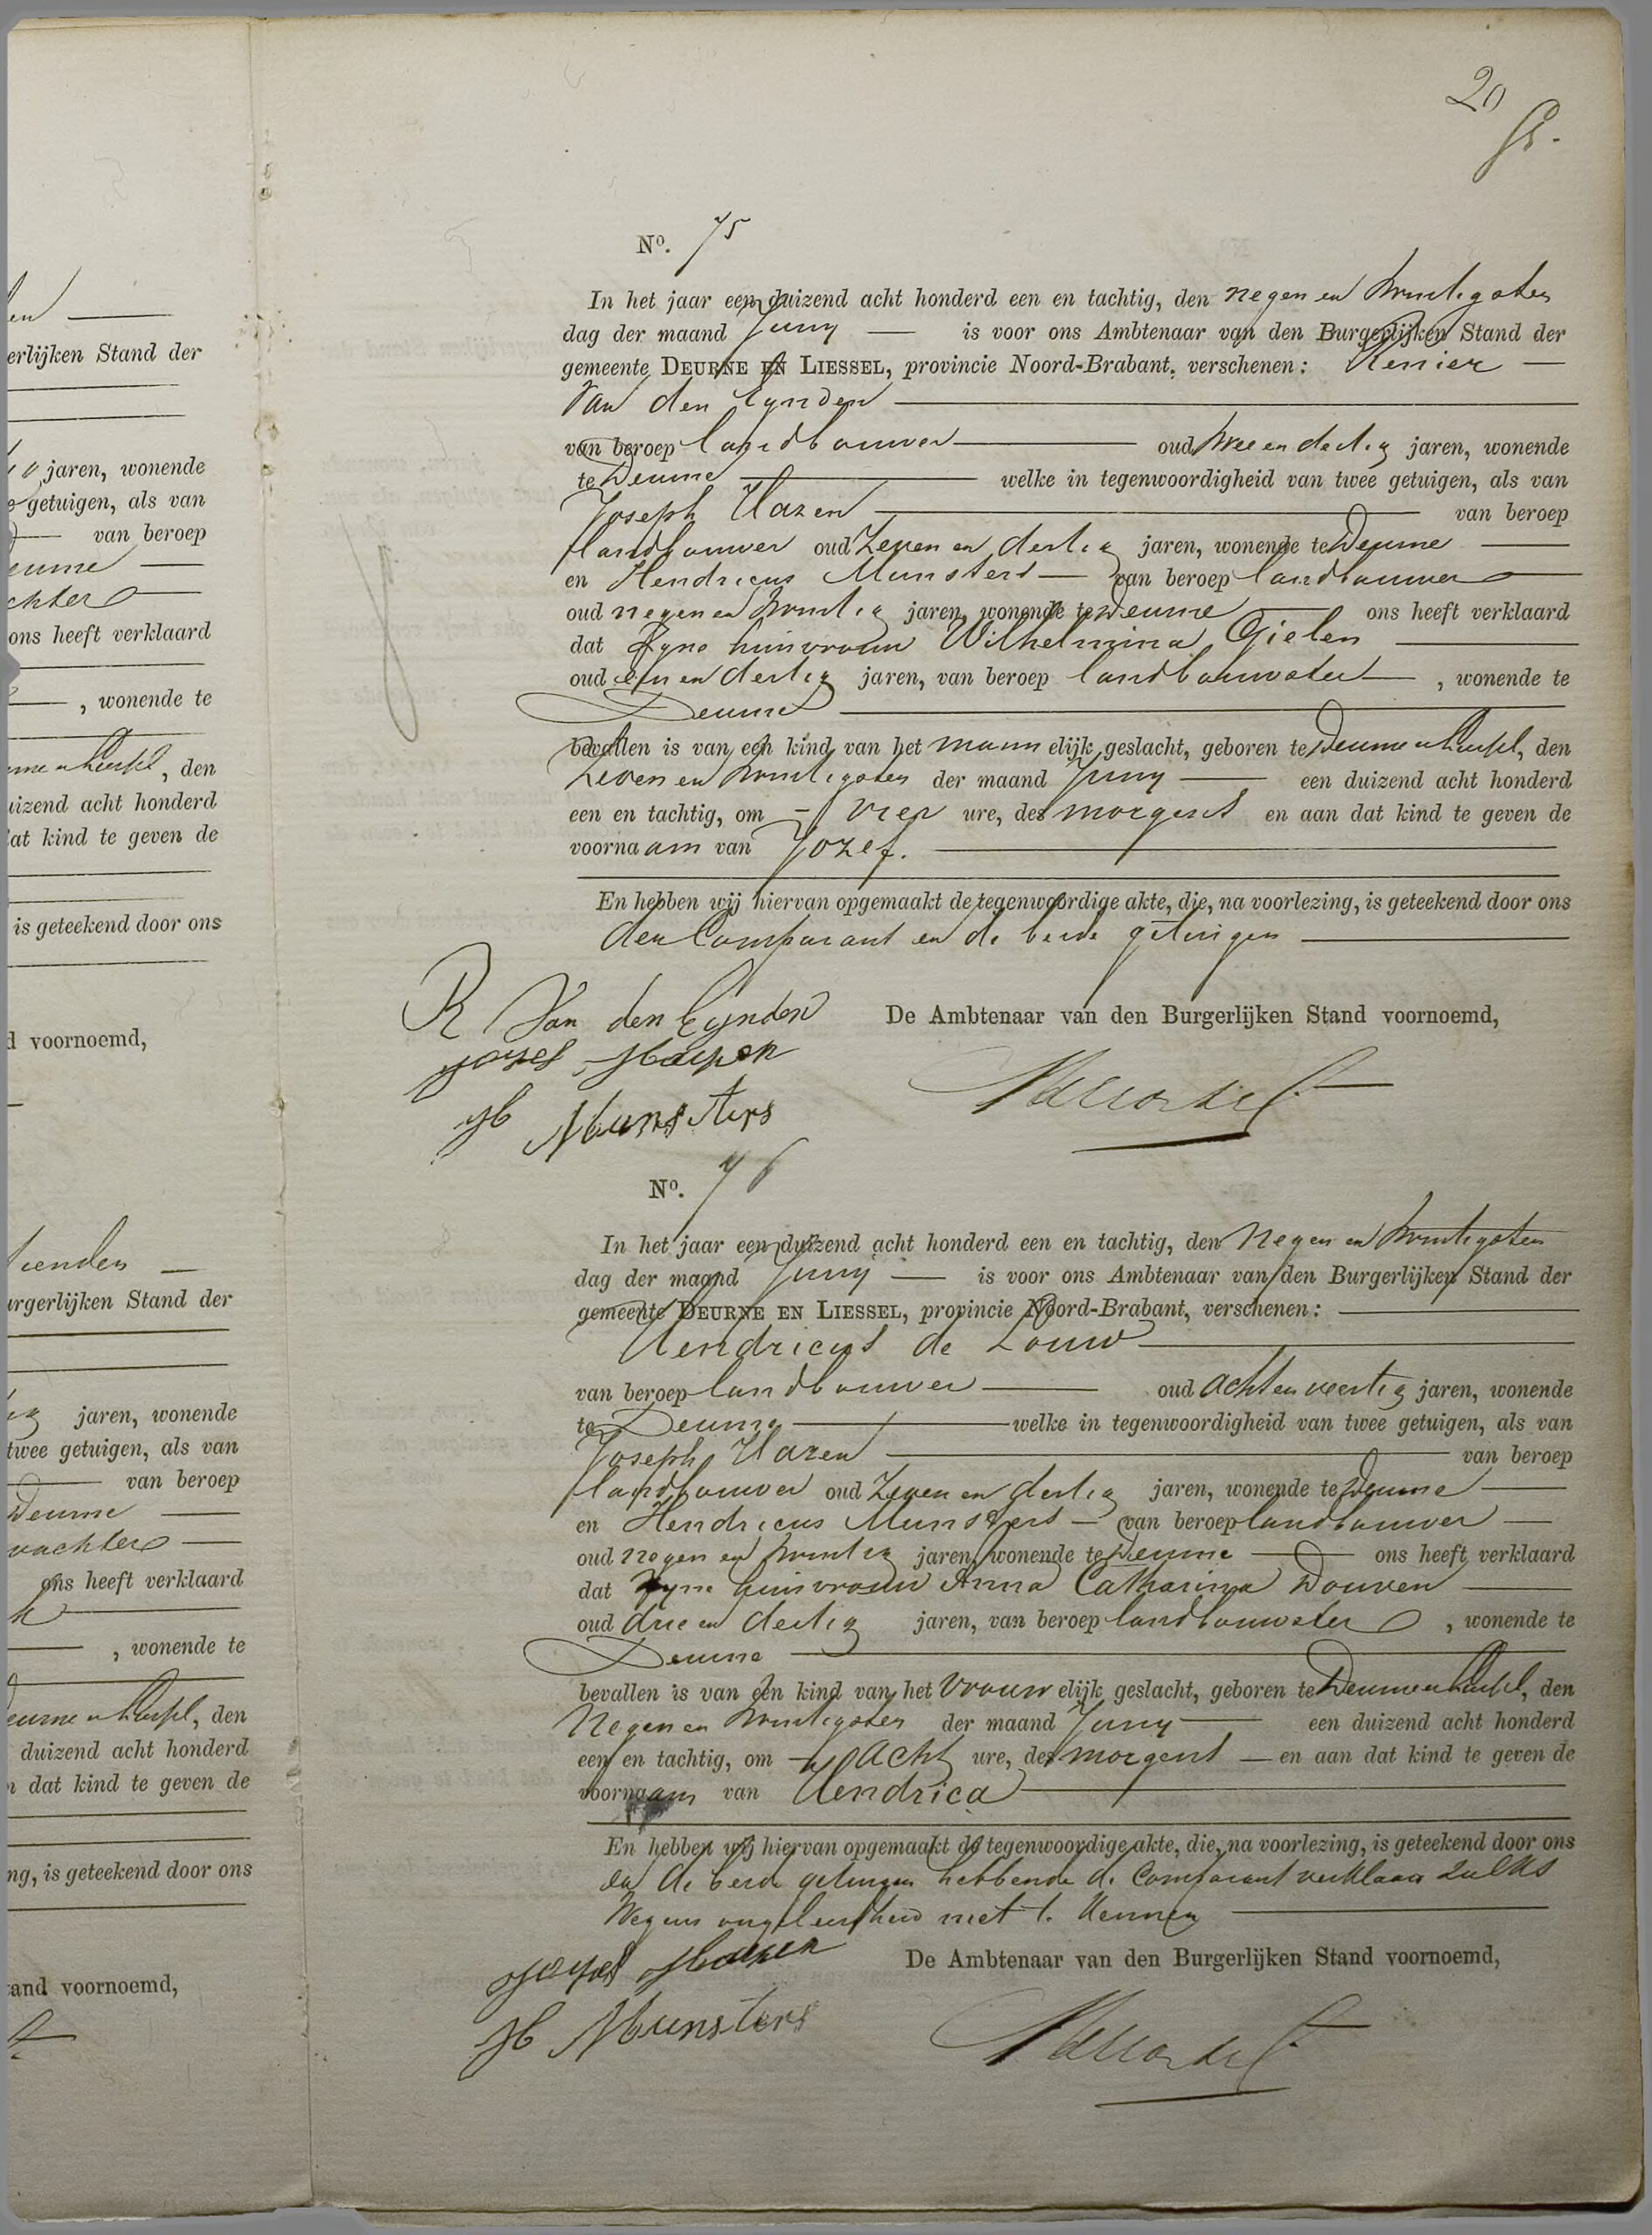 20
en
erlijken Stand der
jaren, wonende
getuigen, als van
van beroep
eurne
chter
ons heeft verklaard
, wonende te
, den
uizend acht honderd
at kind te geven de
is geteekend door ons
d voornoemd,
ienden
urgerlijken Stand der
jaren, wonende
twee getuigen, als van
van beroep
Deurne
wachter
ons heeft verklaard
, wonende te
eurne en Liessel, den
duizend acht honderd
n dat kind te geven de
ng, is geteekend door ons
and voornoemd,
No. 75
In het jaar een duizend acht honderd een en tachtig, den negen en twintigsten
dag der maand Juny is voor ons Ambtenaar van den Burgerlijken Stand der
gemeente DEURNE EN LIESSEL, provincie Noord-Brabant, verschenen: Renier
Van den Eynden
van beroep landbouwer oud twee en dertig jaren, wonende
te Deurne welke in tegenwoordigheid van twee getuigen, als van
Joseph Hazen van beroep
landbouwer oud Zeven en dertig jaren, wonende te Deurne
en Hendricus Munsters van beroep landbouwer
oud negen en twintig jaren, wonende te Deurne ons heeft verklaard
dat Zyne huisvrouw Wilhelmina Gielen
oud een en dertig jaren, van beroep landbouwster, wonende te
Deurne
bevallen is van een kind van het mannelijk geslacht, geboren te Deurne en Liessel, den
Zeven en twintigsten der maand Juny een duizend acht honderd
een en tachtig, om vier ure, des morgens en aan dat kind te geven de
voornaam van Jozef.
En hebben wij hiervan opgemaakt de tegenwoordige akte, die, na voorlezing, is geteekend door ons
den Comparant en de beide getuigen
R Van den Eynden
De Ambtenaar van den Burgerlijken Stand voornoemd,
Josef Hazen
H Munsters
No. 76
In het jaar een duizend acht honderd een en tachtig, den Negen en twintigsten
dag der maand Juny is voor ons Ambtenaar van den Burgerlijken Stand der
gemeente DEURNE EN LIESSEL, provincie Noord-Brabant, verschenen:
Hendricus de Louw
van beroep landbouwer oud acht en veertig jaren, wonende
te Deurne welke in tegenwoordigheid van twee getuigen, als van
Joseph Hazen van beroep
landbouwer oud Zeven en dertig jaren, wonende te Deurne
en Hendricus Munsters van beroep landbouwer
oud negen en twintig jaren, wonende te Deurne ons heeft verklaard
dat Zyne huisvrouw Anna Catharina Douven
oud drie en dertig jaren, van beroep landbouwster, wonende te
Deurne
bevallen is van een kind van het Vrouwelijk geslacht, geboren te Deurne en Liessel, den
Negen en twintigsten der maand Juny een duizend acht honderd
een en tachtig, om acht ure, des morgens en aan dat kind te geven de
voornaam van Hendrica
En hebben wij hiervan opgemaakt de tegenwoordige akte, die, na voorlezing, is geteekend door ons
en de beide getuigen hebbende de Comparant verklaard zulks
Wegens ongeleerdheid niet te kennen
Josef Hazen
De Ambtenaar van den Burgerlijken Stand voornoemd,
H Munsters